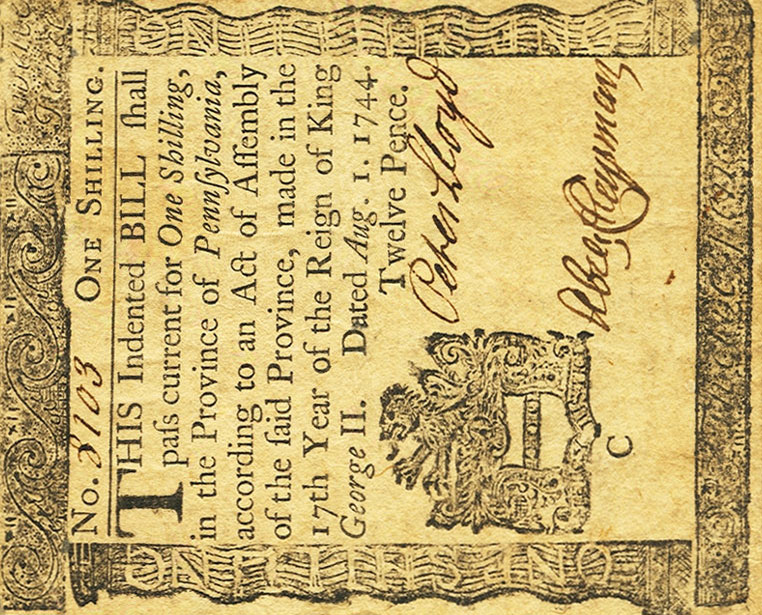 No. 3103 ONE SHILLING.
THIS Indented BILL ſhall
paſs current for One Shilling,
in the Province of Pennſylvania,
according to an Act of Aſſembly
of the ſaid Province, made in the
17th Year of the Reign of King
George II. Dated Aug. 1. 1744.
Twelve Pence.
Peter Lloyd
C